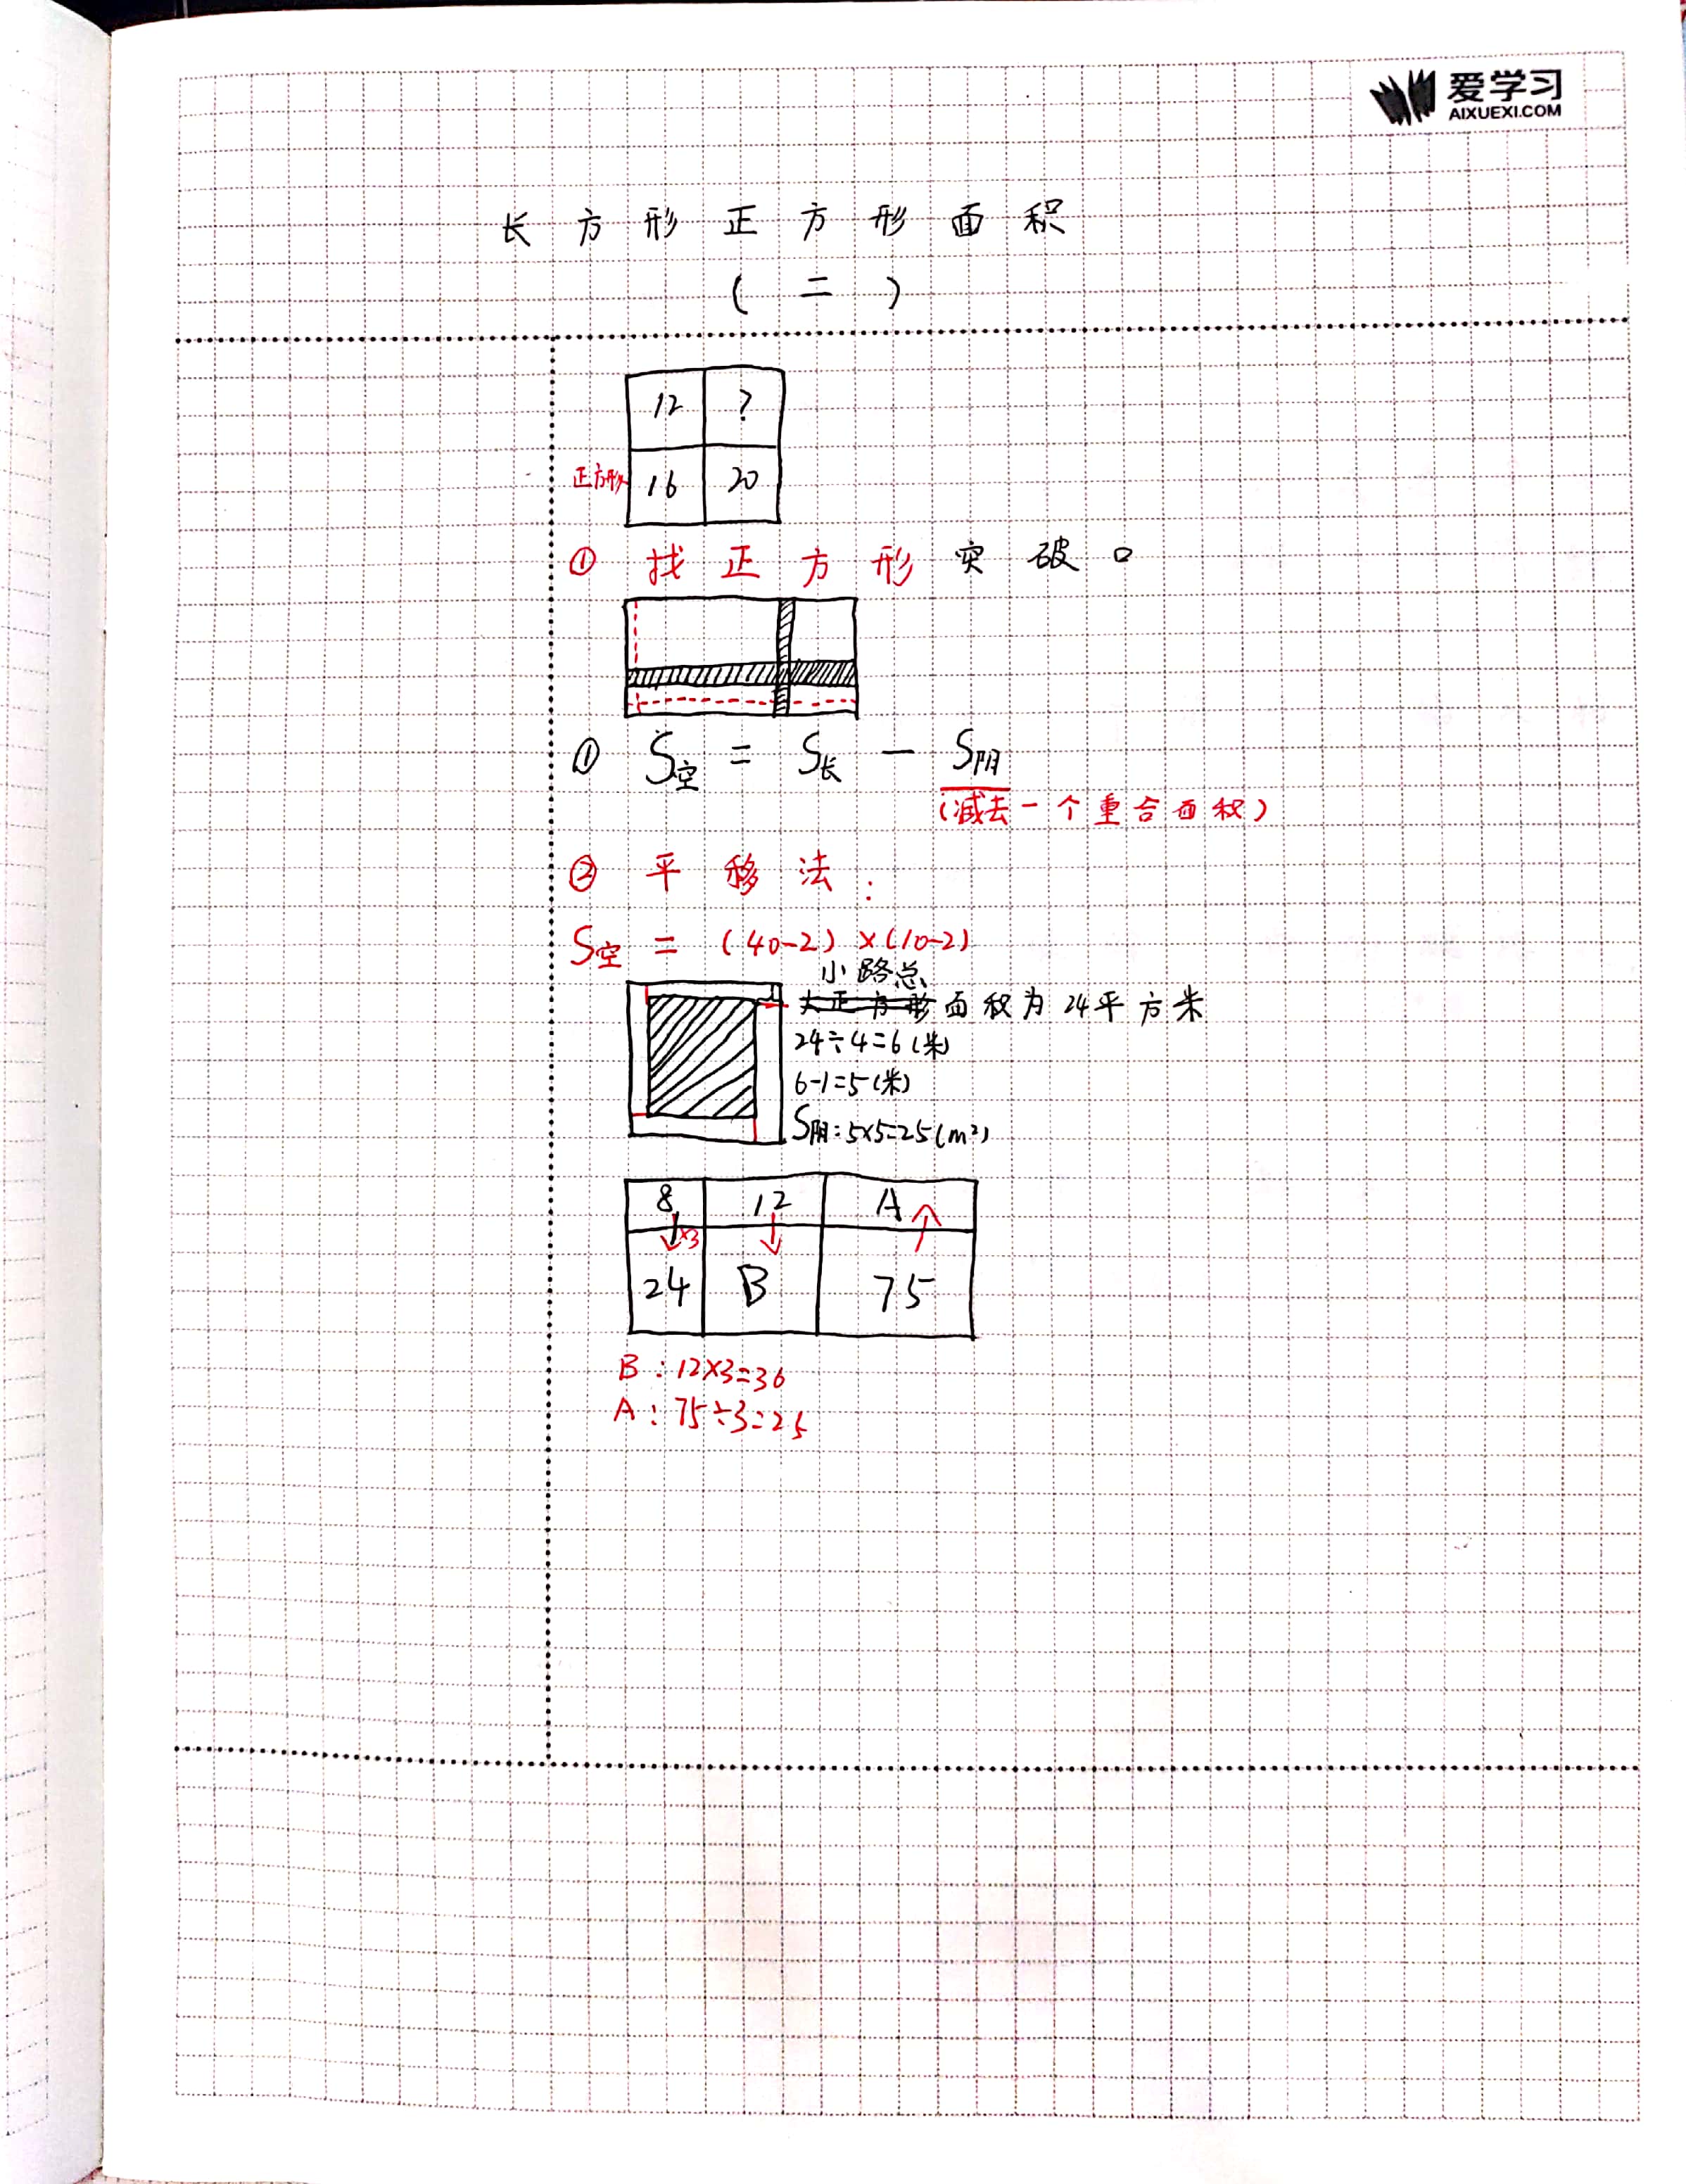 爱学习
AIXUEXI.COM
长方形正方形面积
(二)
12 ?
正方形 16 20
① 找正方形突破口
① S空 = S长 - S阴
(减去一个重合面积)
② 平移法:
S空 = (40-2)×(10-2)
小路总
大正方形面积为24平方米
24÷4=6(米)
6-1=5(米)
S阴:5×5=25(m²)
8 12 A
×3
24 B 75
B:12×3=36
A:75÷3=25